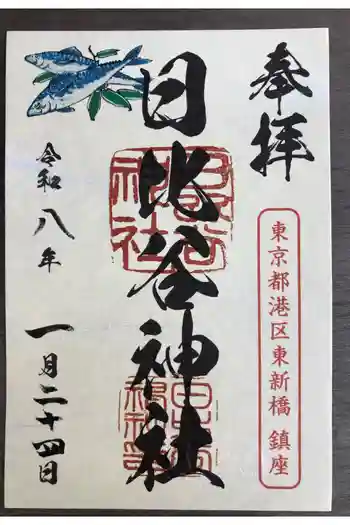 奉拝
東京都港区東新橋 鎮座
日比谷神社
令和八年
一月二十四日